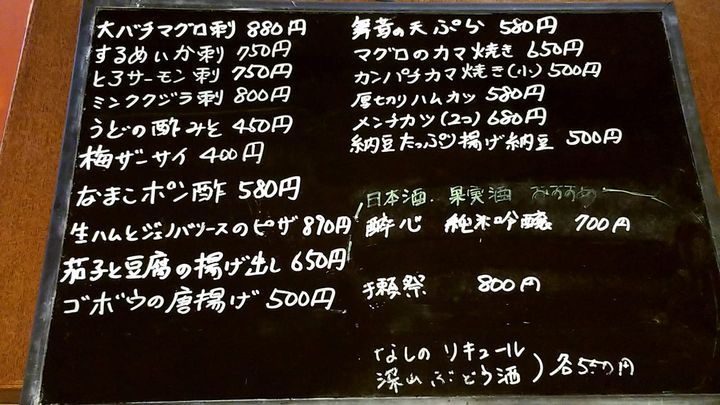 大バチマグロ刺 880円
するめいか刺 750円
とろサーモン刺 750円
ミンククジラ刺 800円
うどの酢みそ 450円
梅ザーサイ 400円
なまこポン酢 580円
生ハムとジェノバソースのピザ 870円
茄子と豆腐の揚げ出し 650円
ゴボウの唐揚げ 500円
舞茸の天ぷら 580円
マグロのカマ焼き 650円
カンパチカマ焼き(小) 500円
厚切りハムカツ 580円
メンチカツ(2コ) 680円
納豆たっぷり揚げ納豆 500円
日本酒・果実酒 おすすめ
酔心 純米吟醸 700円
獺祭 800円
なしの リキュール
深山ぶどう酒 ) 各550円